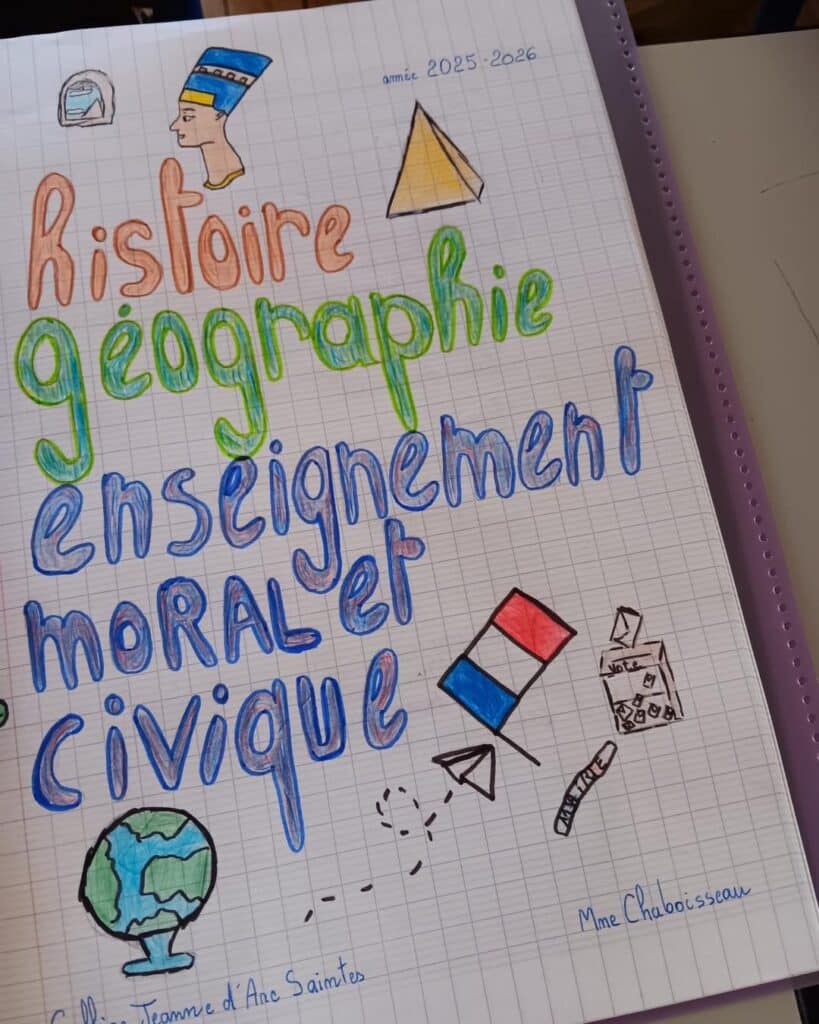 année 2025-2026
histoire
géographie
enseignement
moRAL et
civique
vote
Mme Chaboisseau
Jeanne d'Arc Saintes